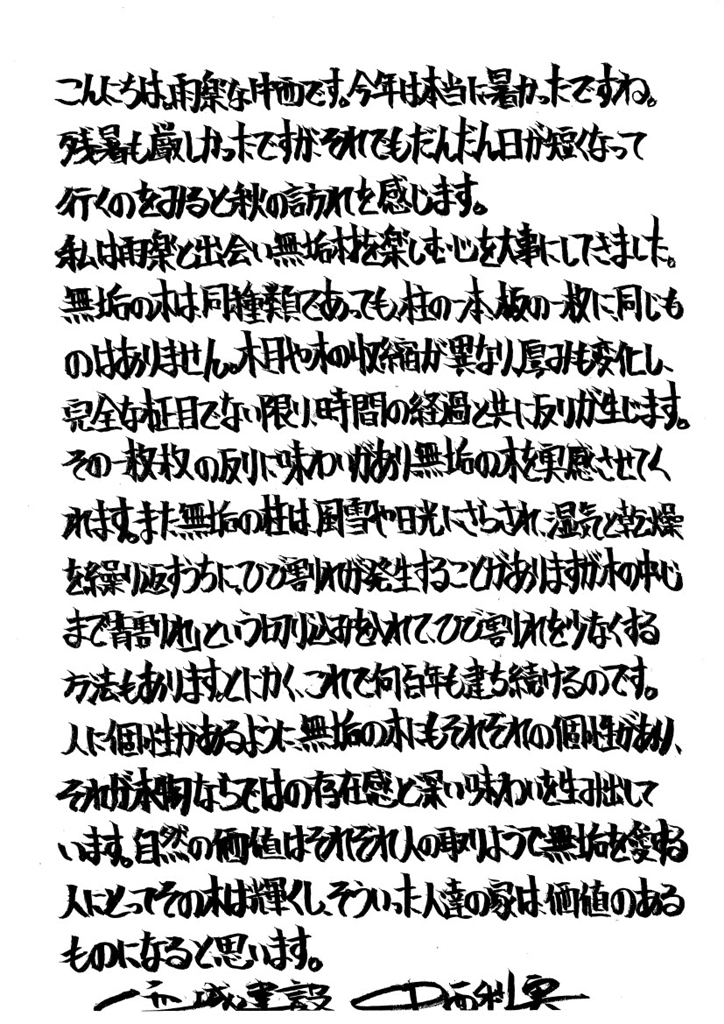 こんにちは。雨楽な中西です。今年は本当に暑かったですね。
残暑も厳しかったですが、それでもだんだん日が短くなって
行くのをみると秋の訪れを感じます。
私は雨楽と出会い無垢材を楽しむ心を大事にしてきました。
無垢の木は、同種類であっても、柱の一本、板の一枚に同じも
のはありません。木目や木の収縮が異なり、厚みも変化し、
完全な柾目でない限り、時間の経過と共に反りが生じます。
その一枚枚の反りに味わいがあり無垢の木を実感させてく
れます。また無垢の柱は、風雪や日光にさらされ、湿気と乾燥
を繰り返すうちに、ひび割れが発生することがありますが木の中心
まで「背割れ」という切り込みを入れて、ひび割れを少なくする
方法もあります。とにかく、これで何百年も建ち続けるのです。
人に個性があるように無垢の木にもそれぞれの個性があり、
それが本物ならではの存在感と深い味わいを生み出して
います。自然の価値はそれぞれ人の取りようで無垢を愛する
人にとってその木は輝くし、そういった人達の家は、価値のある
ものになると思います。
建設 中西利実